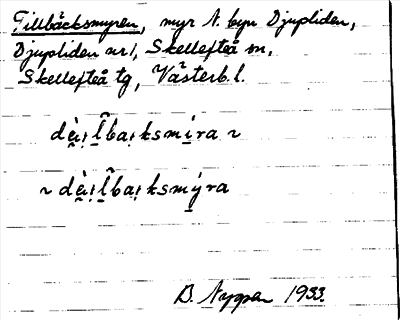 Tillbäcksmyren, myr N. byn Djupliden,
Djupliden nr 1, Skellefteå sn,
Skellefteå tg, Västerb. l.
dè̤ꞎl̂baꞎksmi̱ra ~
~ dè̤ꞎl̂baꞎksmý̱ra
1933.